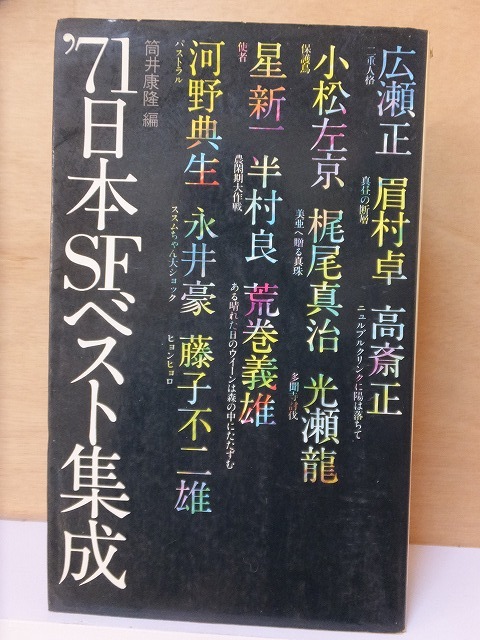 広瀬正
二重人格
眉村卓
真昼の断層
高斎正
ニュルブルクリンクに陽は落ちて
小松左京
保護鳥
梶尾真治
美亜へ贈る真珠
光瀬龍
多聞寺討伐
星新一
使者
半村良
農閑期大作戦
荒巻義雄
ある晴れた日のウイーンは森の中にたたずむ
河野典生
パストラル
永井豪
ススムちゃん大ショック
藤子不二雄
ヒョンヒョロ
筒井康隆 編
'71日本SFベスト集成